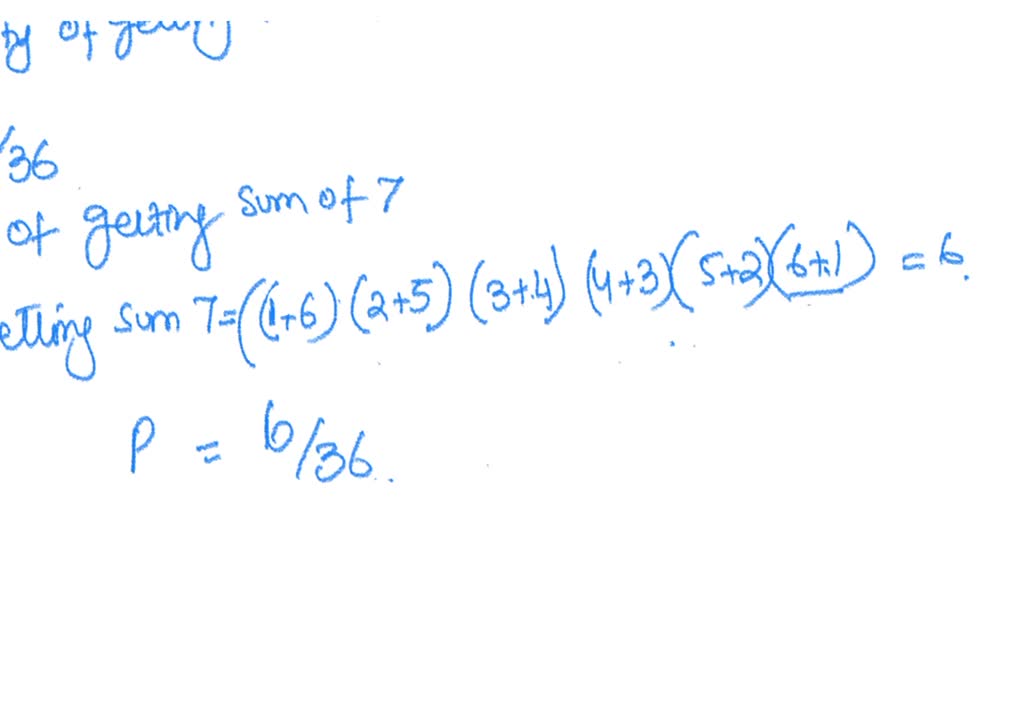 of getting
/36
of getting sum of 7
etting sum 7=((1+6) (2+5) (3+4) (4+3)(5+2)(6+1)) = 6.
P = 6/36.